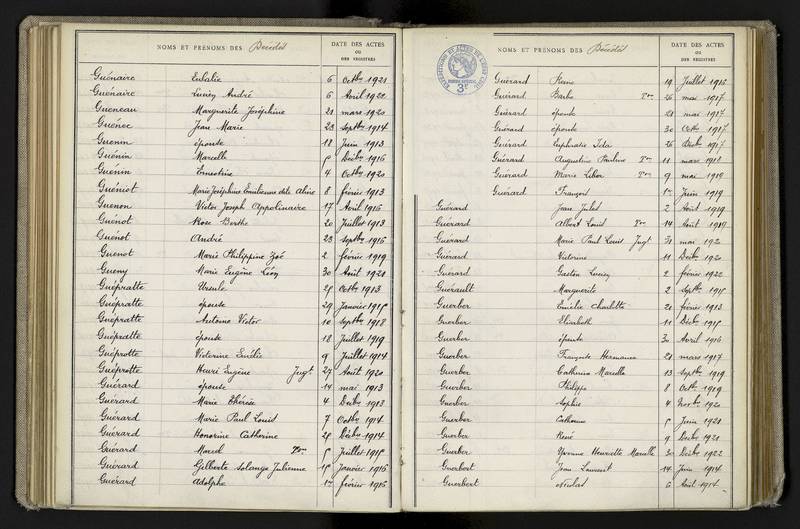 NOMS ET PRÉNOMS DES Décédés DATE DES ACTES OU DES REGISTRES
Guénaire Eulalie 6 Octbre 1921
Guénaire Lucien André 6 Avril 1922
Gueneau Marguerite Joséphine 21 mars 1920
Guénec Jean Marie 23 Septbre 1914
Guenin épouse 18 Juin 1913
Guénin Marcelle 5 Décbre 1916
Guénin Ernestine 4 Octbre 1920
Guéniot Marie Joséphine Emilienne dite Aline 8 février 1913
Guenon Victor Joseph Appolinaire 17 Avril 1916
Guénot Rose Berthe 20 Juillet 1913
Guénot André 23 Septbre 1916
Guenot Marie Philippine Zoé 2 février 1919
Gueny Marie Eugène Léon 30 Août 1921
Guépratte Ursule 25 Octbre 1913
Guépratte épouse 29 Janvier 1915
Guépratte Antoine Victor 10 Septbre 1918
Guépratte épouse 18 Juillet 1919
Guéprotte Victorine Emélie 9 Juillet 1914
Guéprotte Henri Eugène Jugt 27 Août 1920
Guérard épouse 14 mai 1913
Guérard Marie Thérèse 4 Décbre 1913
Guérard Marie Paul Louis 7 Octbre 1914
Guérard Honorine Catherine 28 Décbre 1914
Guérard Marcel Ton 5 Juillet 1915
Guérard Gilberte Solange Julienne 15 Janvier 1916
Guérard Adolphe 1er février 1916
NOMS ET PRÉNOMS DES Décédés DATE DES ACTES OU DES REGISTRES
3F
Guérard Reine 19 Juillet 1916
Guérard Barbe Ton 26 mai 1917
Guérard épouse 21 mai 1917
Guérard épouse 30 Octbre 1917
Guérard Euphrasie Ida 26 Décbre 1917
Guérard Augustine Pauline Ton 11 mars 1918
Guérard Marie Ton 9 mai 1919
Guérard François 1er Juin 1919
Guérard Jean Jules 2 Août 1919
Guérard Albert Louis Ton 14 Août 1919
Guérard Marie Paul Louis Jugt 31 mai 1920
Guérard Victorine 11 Décbre 1920
Guérard Gaston Lucien 2 février 1922
Guérault Marguerite 2 Septbre 1915
Guerber Emélie Charlotte 20 février 1913
Guerber Elisabeth 11 Décbre 1915
Guerber épouse 30 Avril 1916
Guerber Françoise Hermance 21 mars 1917
Guerber Catherine Marcelle 13 Septbre 1919
Guerber Philippe 8 Octbre 1919
Guerber Sophie 4 Novbre 1920
Guerber Catherine 5 Juin 1921
Guerber René 9 Décbre 1921
Guerber Yvonne Henriette Marcelle 30 Décbre 1922
Guerbert Jean Laurent 14 Juin 1914
Guerbert Nicolas 6 Août 1914